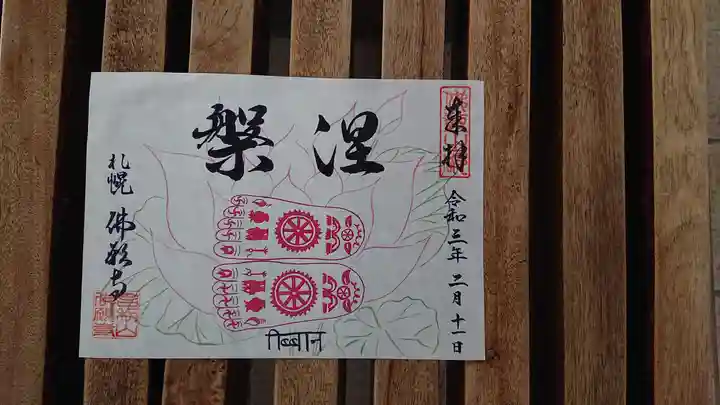 来拝
令和三年 二月十一日
涅槃
札幌 佛寺
निब्बान